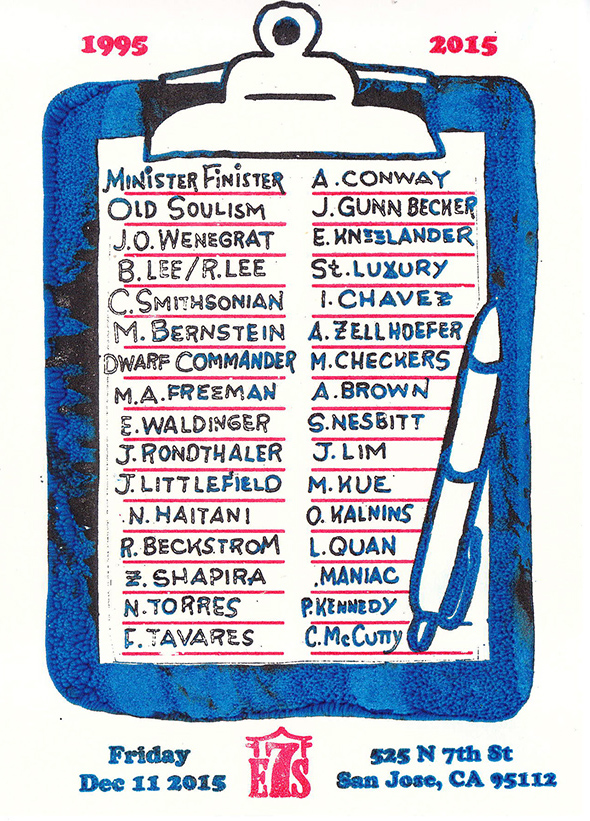 1995 2015
MINISTER FINISTER
OLD SOULISM
J.O. WENEGRAT
B. LEE/R. LEE
C. SMITHSONIAN
M. BERNSTEIN
DWARF COMMANDER
M.A. FREEMAN
E. WALDINGER
J. RONDTHALER
J. LITTLEFIELD
N. HAITANI
R. BECKSTROM
Z. SHAPIRA
N. TORRES
F. TAVARES
A. CONWAY
J. GUNN BECKER
E. KNEELANDER
St. LUXURY
I. CHAVEZ
A. ZELLHOEFER
M. CHECKERS
A. BROWN
S. NESBITT
J. LIM
M. KUE
O. KALNINS
L. QUAN
.MANIAC
P. KENNEDY
C. McCUTTY
Friday
Dec 11 2015
E7S
525 N 7th St
San Jose, CA 95112